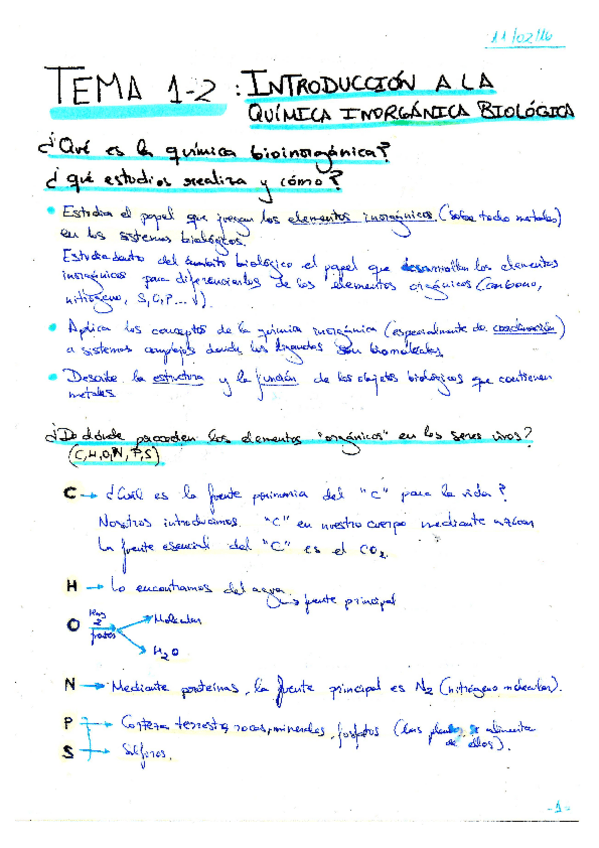 11/02/16
TEMA 1-2 : INTRODUCCIÓN A LA
QUÍMICA INORGÁNICA BIOLÓGICA
¿Qué es la química bioinorgánica?
¿qué estudios realiza y cómo?
• Estudia el papel que juegan los elementos inorgánicos. (sobre todo metales)
en los sistemas biológicos.
Estudia dentro del ámbito biológico el papel que desarrollan los elementos
inorgánicos para diferenciarlos de los elementos orgánicos (carbono,
nitrógeno, S, O, P... ).
• Aplica los conceptos de la química inorgánica (especialmente de coordinación)
a sistemas complejos donde los ligandos son biomoléculas.
• Describe la estructura y la función de los objetos biológicos que contienen
metales.
¿De dónde proceden los elementos "orgánicos" en los seres vivos?
(C,H,O,N,P,S)
C → ¿Cuál es la fuente primaria del "C" para la vida?
Nosotros introducimos "C" en nuestro cuerpo mediante azúcar
La fuente esencial del "C" es el CO2
H → Lo encontramos del agua.
→ fuente principal
O Hay 2 fuentes → Molecular
→ H2O
N → Mediante proteínas, la fuente principal es N2 (nitrógeno molecular).
P → Corteza terrestre, rocas, minerales, fosfatos (las plantas se alimenta
de ellos).
S → Sulfuros.
-1-